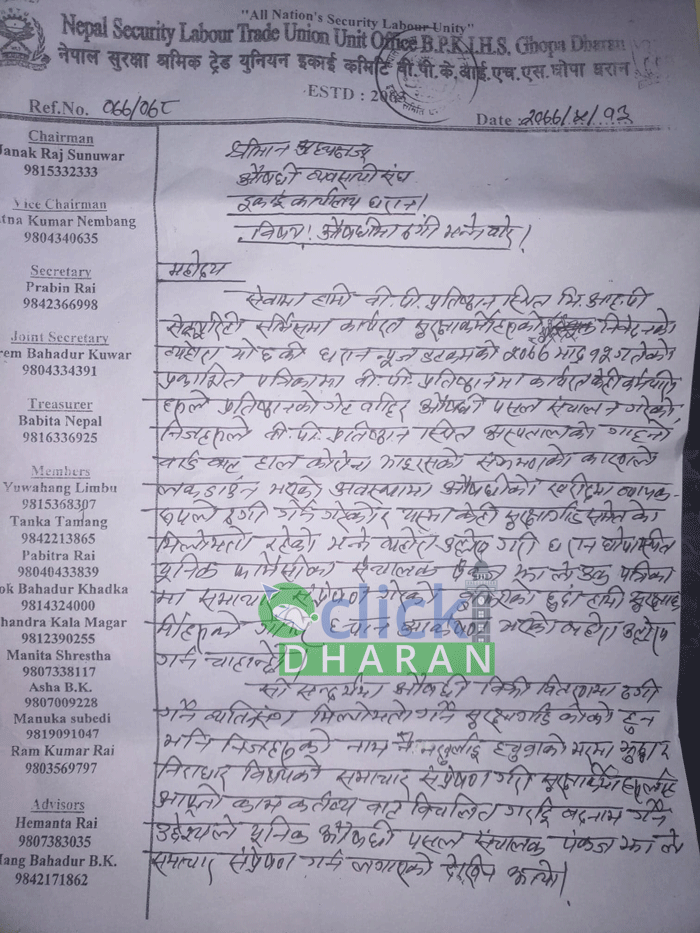 "All Nation's Security Labour Unity"
Nepal Security Labour Trade Union Unit Office B.P.K.I.H.S. Ghopa Dharan
नेपाल सुरक्षा श्रमिक ट्रेड युनियन इकाई कमिटि वी.पी.के.आई.एच.एस.घोपा धरान
ESTD : 20
Ref.No. ०६६/०६८
Date : २०७७/५/१३
Chairman
Janak Raj Sunuwar
9815332333
Vice Chairman
tna Kumar Nembang
9804340635
Secretary
Prabin Rai
9842366998
Joint Secretary
rem Bahadur Kuwar
9804334391
Treasurer
Babita Nepal
9816336925
Members
Yuwahang Limbu
9815368307
Tanka Tamang
9842213865
Pabitra Rai
98040433839
ok Bahadur Khadka
9814324000
handra Kala Magar
9812390255
Manita Shrestha
9807338117
Asha B.K.
9807009228
Manuka subedi
9819091047
Ram Kumar Rai
9803569797
Advisors
Hemanta Rai
9807383035
ang Bahadur B.K.
9842171862
श्रीमान अध्यक्षज्यू
औषधी व्यवसायी संघ
इकाई कार्यालय धरान।
विषय! औषधीमा ठगी भन्ने बारे।
महोदय
सेवामा हामी वी.पी.प्रतिष्ठान स्थित भि.आर.पी
सेक्यूरिटी सर्भिसमा कार्यरत सुरक्षाकर्मीहरुको निवेदनको
व्यहोरा यो छ की धरान न्यूज डटकमको २०७७ भाद्र १२ गतेको
प्रकाशित पत्रिकामा वी.पी.प्रतिष्ठानमा कार्यरत केही कर्मचारी
हरुले प्रतिष्ठानको गेट बाहिर औषधी पसल संचालन गरेको,
निजहरुले वी.पी.प्रतिष्ठान स्थित अस्पतालको
वार्ड बाट हाल कोरोना भाइरसको संक्रमणको कारणले
लकडाउन भएको अवस्थामा औषधीको खरीदमा व्यापक
रुपले ठगी गर्ने गरेको र यसमा केही सुरक्षागार्ड समेतको
मिलोमतो रहेको भन्ने व्यहोरा उल्लेख गरी धरान घोपा स्थित
यूनिक फार्मेसीका संचालक पंकज झा ले उक्त पत्रिका
मा समाचार संप्रेषण गरेको हुदा हामी सुरक्षाक
र्मीहरुको ध्यान आकर्षण भएको व्यहोरा उल्लेख
गर्न चाहान्छौ।
सो सन्दर्भमा औषधी बिक्री वितरणमा ठगी
गर्ने व्यक्तिसंग मिलोमतो गर्ने सुरक्षागार्ड को को हुन
भनि निजहरुको नाम नै
निराधार विषयको समाचार संप्रेषण गरी सुरक्षाकर्मीहरुलाई
आफ्नो काम कर्तव्य बाट विचलित गराई बदनाम गर्ने
उद्देश्यले यूनिक औषधी पसल संचालक पंकज झा ले
समाचार संप्रेषण गर्न लगाएको देखिन आयो।
click
DHARAN